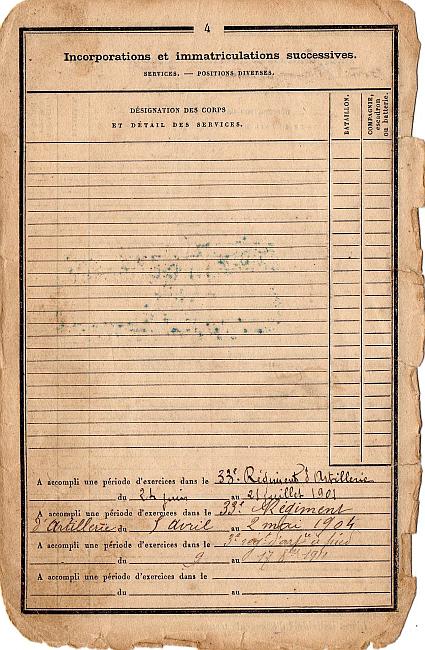 4
Incorporations et immatriculations successives.
SERVICES. — POSITIONS DIVERSES.
DÉSIGNATION DES CORPS
ET DÉTAIL DES SERVICES.
BATAILLON.
COMPAGNIE,
escadron
ou batterie.
A accompli une période d'exercices dans le 33e Régiment d'Artillerie
du 24 juin au 21 juillet 1901
A accompli une période d'exercices dans le 33e Régiment
d'Artillerie du 5 avril au 2 mai 1904
A accompli une période d'exercices dans le 3e à pied
du 9 au 17 1911
A accompli une période d'exercices dans le
du au